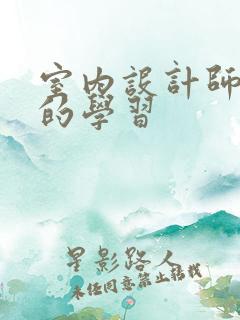 室内設計師
的學習
星影路人
未任同意禁止轉載